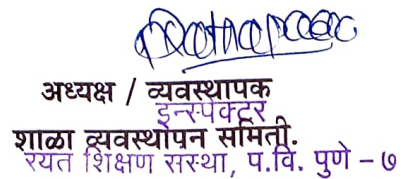 अध्यक्ष / व्यवस्थापक
इन्स्पेक्टर
शाळा व्यवस्थापन समिती.
रयत शिक्षण संस्था, प.वि. पुणे – ७